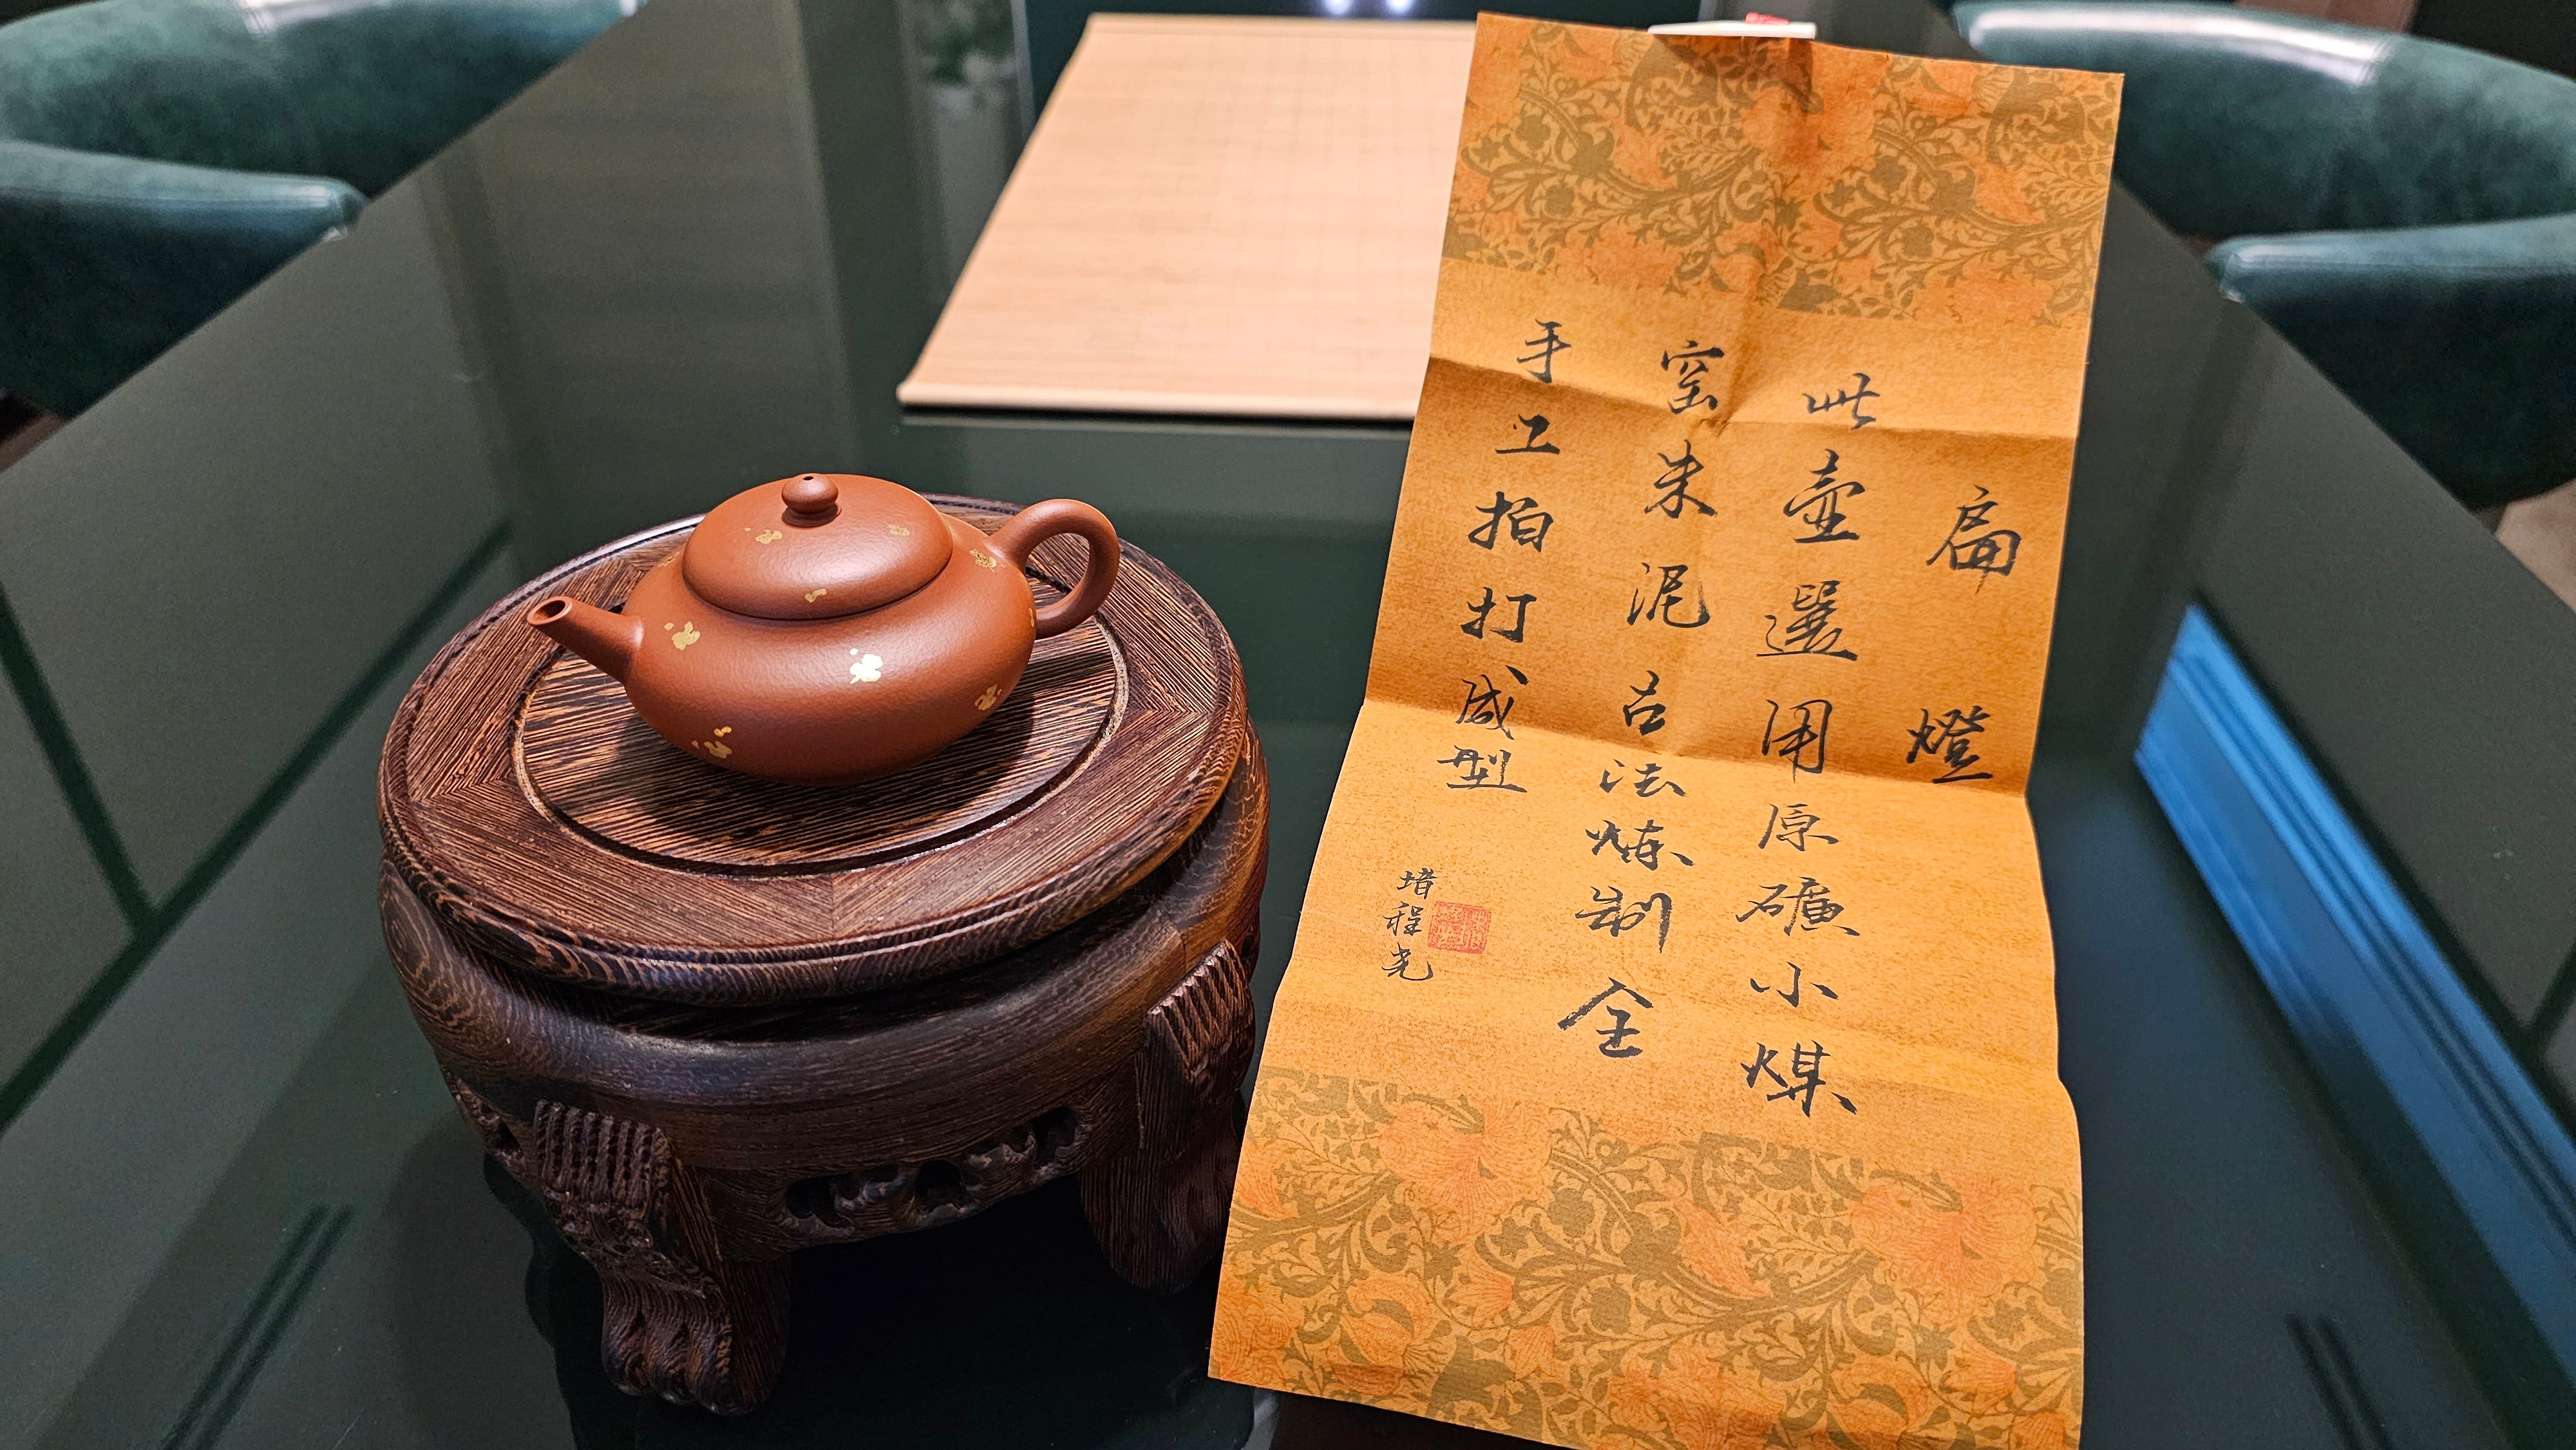 扁燈
此壺選用原礦小煤
窑朱泥古法炼制全
手工拍打成型
程尧